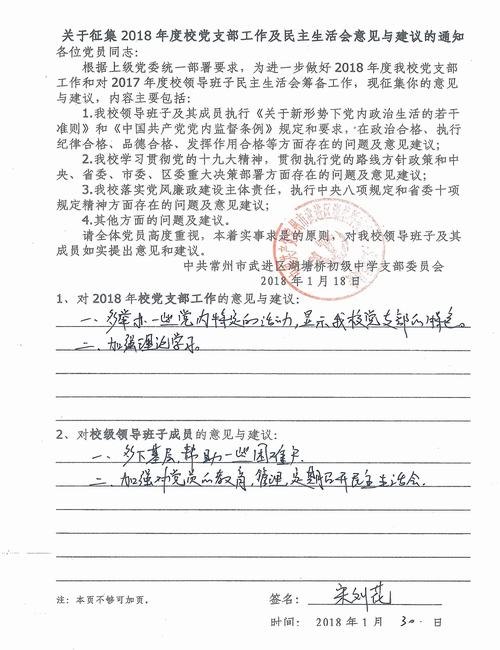 关于征集 2018 年度校党支部工作及民主生活会意见与建议的通知
各位党员同志:
根据上级党委统一部署要求,为进一步做好 2018 年度我校党支部
工作和对 2017 年度校领导班子民主生活会筹备工作,现征集你的意见
与建议,内容主要包括:
1.我校领导班子及其成员执行《关于新形势下党内政治生活的若干
准则》和《中国共产党党内监督条例》规定和要求,在政治合格、执行
纪律合格、品德合格、发挥作用合格等方面存在的问题及意见建议;
2.我校学习贯彻党的十九大精神,贯彻执行党的路线方针政策和中
央、省委、市委、区委重大决策部署方面存在的问题及意见建议;
3.我校落实党风廉政建设主体责任,执行中央八项规定和省委十项
规定精神方面存在的问题及意见建议;
4.其他方面的问题及建议。
请全体党员高度重视,本着实事求是的原则,对我校领导班子及其
成员如实提出意见和建议。
中共常州市武进区湖塘桥初级中学支部委员会
2018 年 1 月 18 日
1、对 2018 年校党支部工作的意见与建议:
一、多举办一些党内特定的活动,显示我校党支部的特色。
二、加强理论学习。
2、对校级领导班子成员的意见与建议:
一、多下基层,帮助一些困难户.
二、加强对党员的教育,管理,定期召开民主生活会.
注:本页不够可加页。
签名:
时间: 2018 年 1 月 30 日